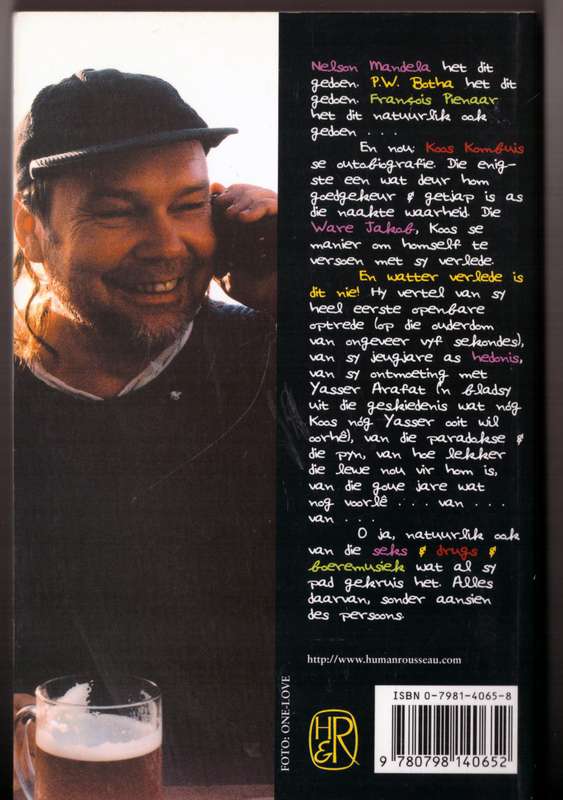 Nelson Mandela het dit
gedoen. P.W. Botha het dit
gedoen. François Pienaar
het dit natuurlik ook
gedoen . . .
En nou: Koos Kombuis
se outobiografie. Die enig-
ste een wat deur hom
goedgekeur & getjap is as
die naakte waarheid. Die
Ware Jakob, Koos se
manier om homself te
versoen met sy verlede.
En watter verlede is
dit nie! Hy vertel van sy
heel eerste openbare
optrede (op die ouderdom
van ongeveer vyf sekondes),
van sy jeugjare as hedonis,
van sy ontmoeting met
Yasser Arafat ('n bladsy
uit die geskiedenis wat nóg
Koos nóg Yasser ooit wil
oorhê), van die paradokse &
die pyn, van hoe lekker
die lewe nou vir hom is,
van die goue jare wat
nog voorlê . . . van . . .
van . . .
O ja, natuurlik ook
van die seks & drugs &
boeremusiek wat al sy
pad gekruis het. Alles
daarvan, sonder aansien
des persoons.
http://www.humanrousseau.com
FOTO: ONE-LOVE
H&R
ISBN 0-7981-4065-8
9 780798 140652